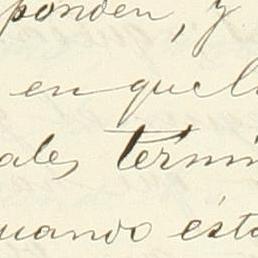 ponden, y
en quel
ales, térmi
uando ésto